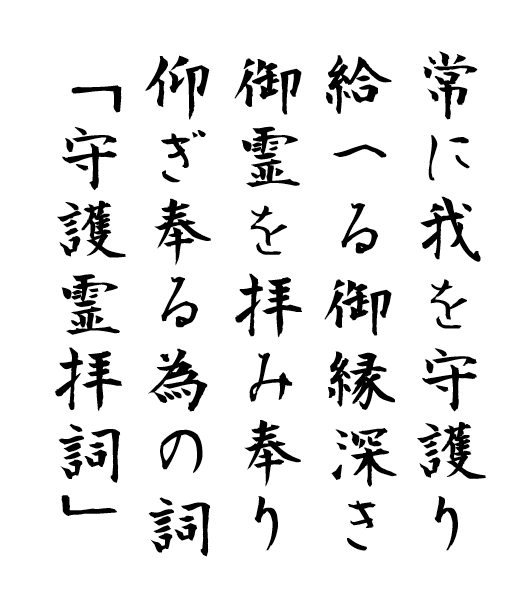 常に我を守護り
給へる御縁深き
御霊を拝み奉り
仰ぎ奉る為の詞
「守護霊拝詞」